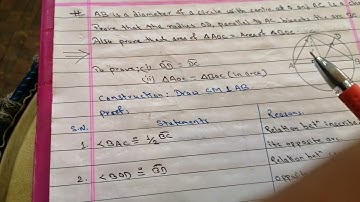 # AB is a diameter of a circle with centre at O and AC is a
Prove that the radius OD parallel to AC bisects the arc
Also prove that area of △AOC = Area of △BOC
To prove: (i) B͡D = D͡C
(ii) △AOC = △BOC (in area)
Construction: Draw CM ⊥ AB
proof:
S.N. Statements Reasons
1. <BAC ≅ 1/2 B͡C Relation betⁿ
the opposite arc
2. <BOD ≅ B͡D Relation betⁿ
opposite
A
B